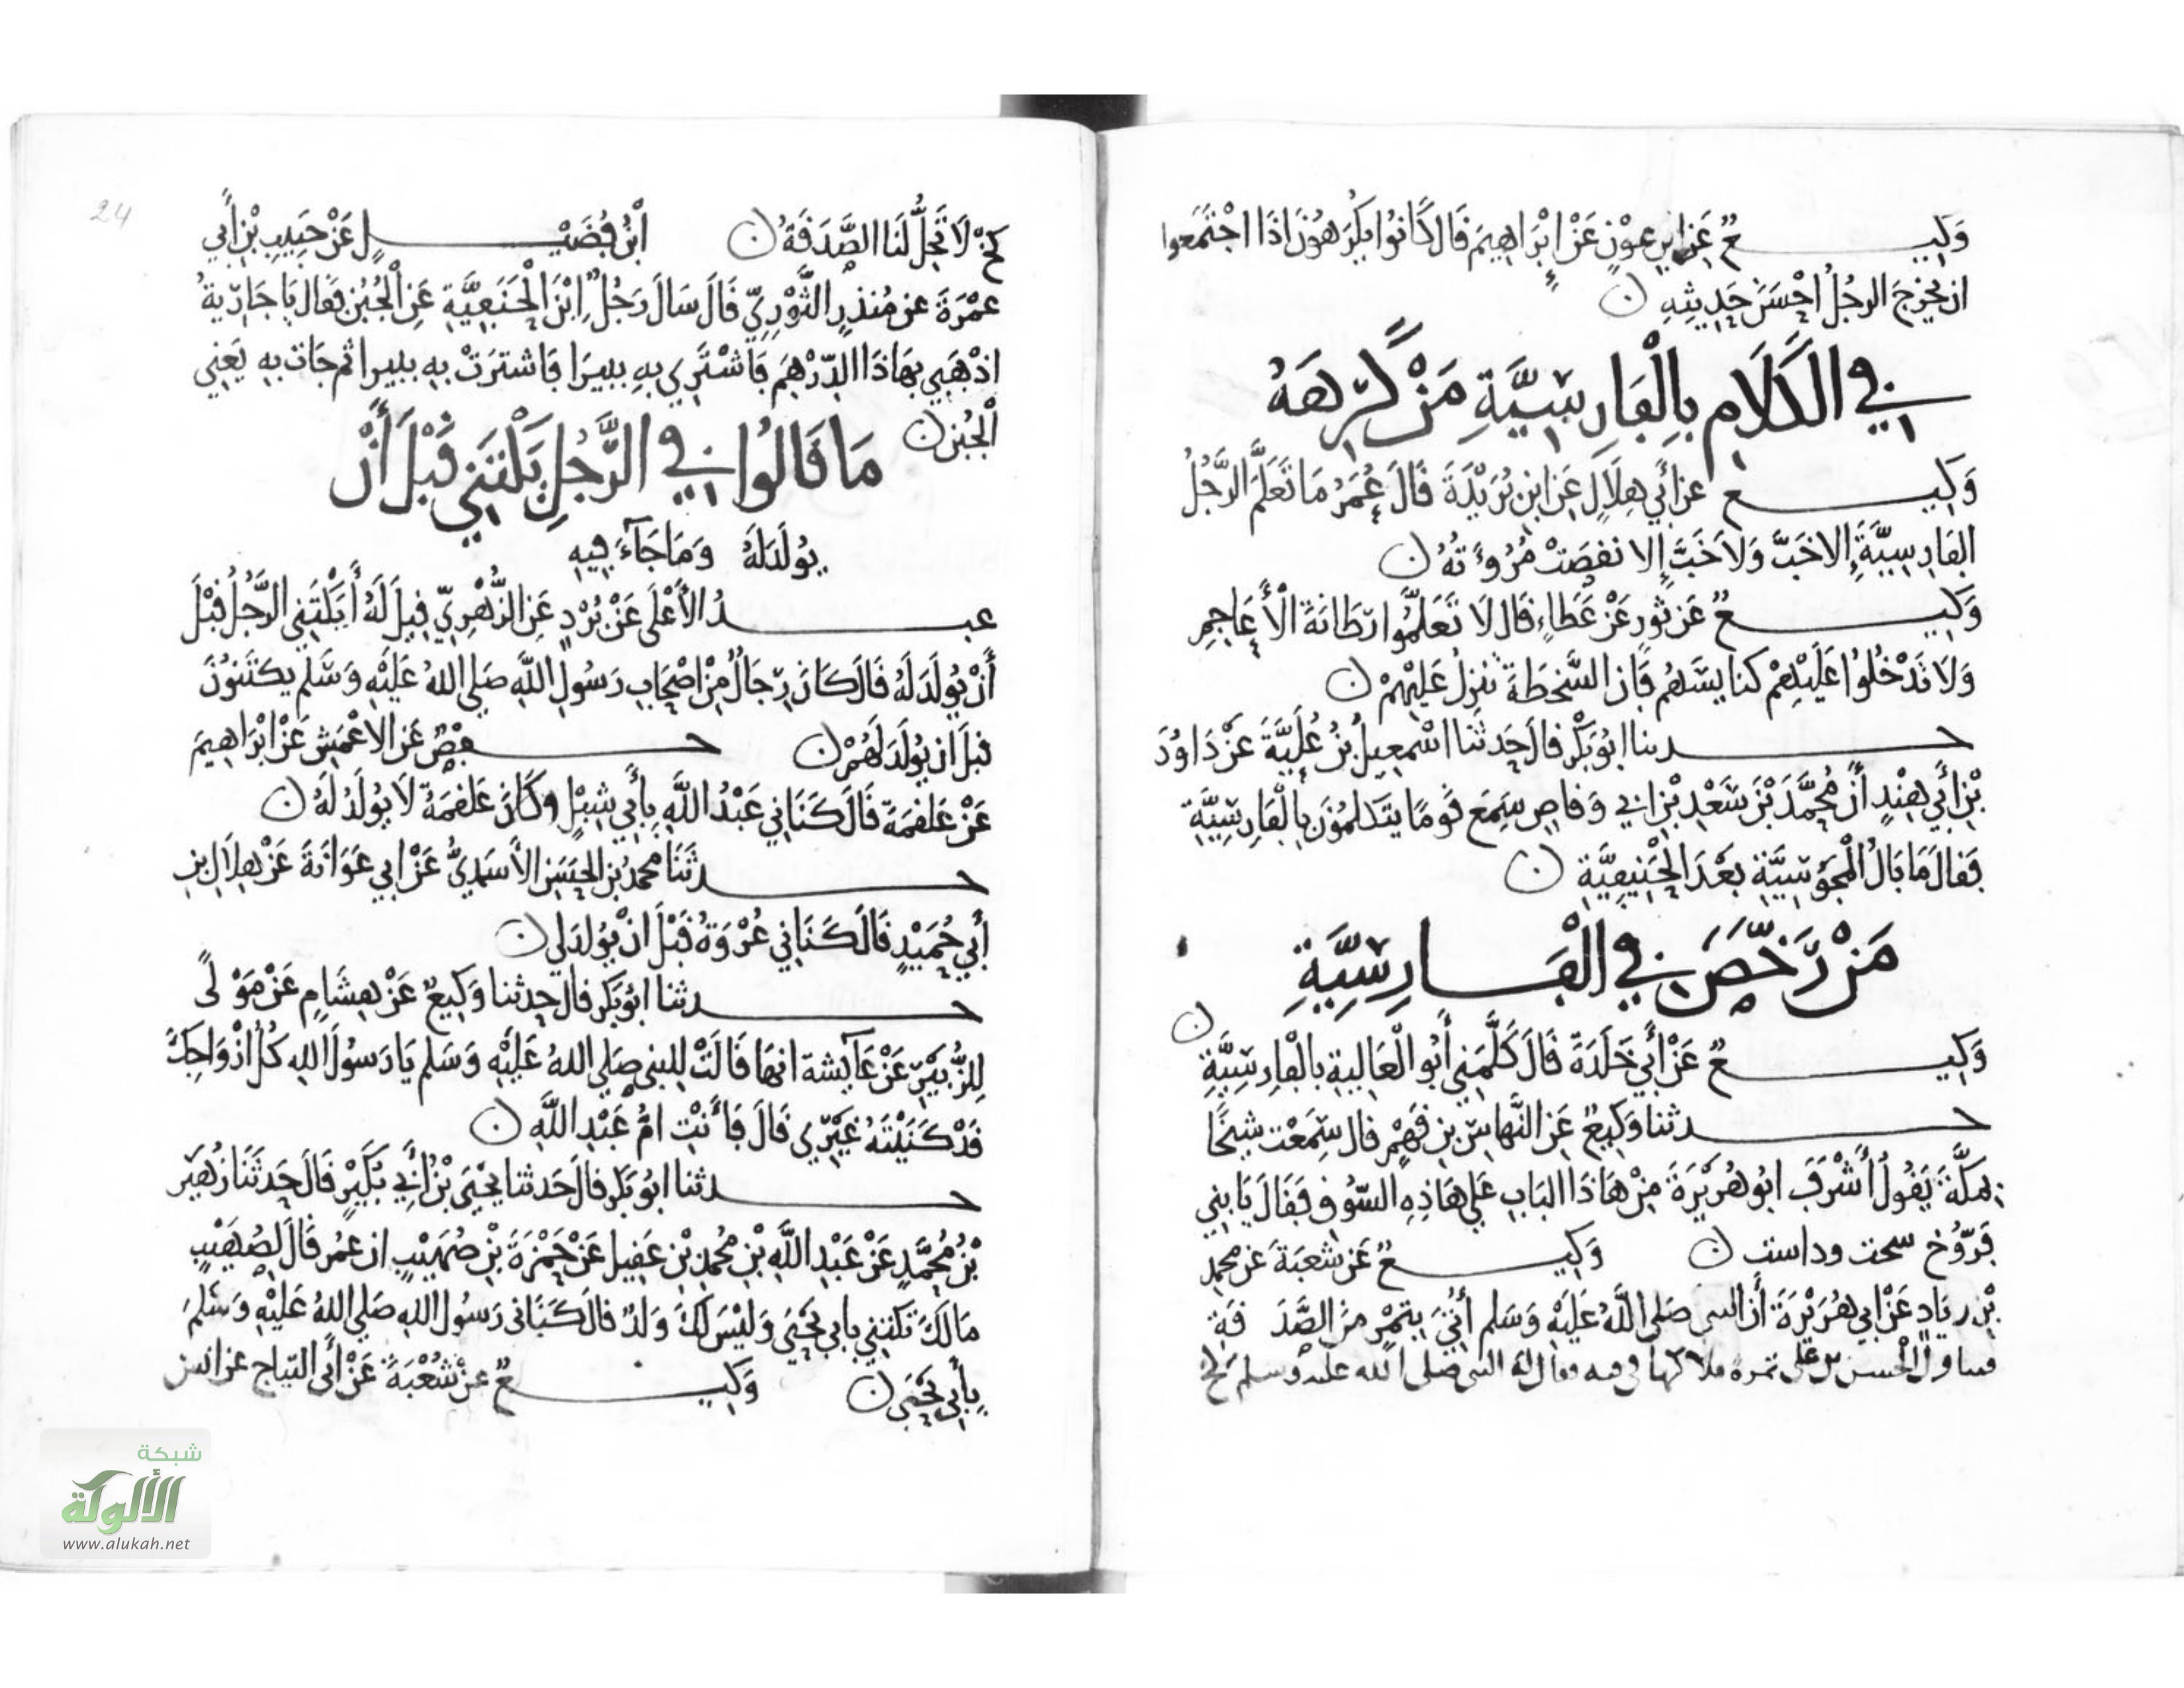 وَكِيعٌ عَنِ ابْنِ عَوْنٍ عَنْ إِبْرَاهِيمَ قَالَ كَانُوا يَكْرَهُونَ اذَا اجْتَمَعوا
ان يخرجَ الرجُلُ احْسَنَ حَدِيثِهِ ن
في الْكَلَامِ بِالْفَارِسِيَّةِ مَنْ كَرِهَهُ
وَكِيع عن أَبي هِلَالٍ عَنِ ابنِ بُرَيْدَةَ قَالَ عُمَرُ مَا تَعَلَّمَ الرَّجُلُ
الفَارِسِيَّةَ إِلا خَبَّ وَلَا خَبَّ إلا نقصَتْ مُرُوءَتُهُ ن
وَكِيعٌ عَن ثَورٍ عَنْ عَطَاءٍ قَال لَا تَعَلَّمُوا رَطَانَةَ الْأَعَاجِمِ
وَلَا تَدْخُلُوا عَلَيْهِمْ كنايِسَهُم فَإن السَّخطَةَ تنزلُ عَلَيْهِمْ ن
حدثنا ابُو بَكْرٍ قالَ حَدثَنَا اسْمعِيلُ بْنُ عُلَيَّةَ عَنْ دَاوُدَ
بْنِ أَبي هِنْدٍ أَنَّ مُحمَّدَ بْنَ سَعْدِ بْنِ أبي وَقاصٍ سَمِعَ قَومًا يَتَكلمُونَ بِالْفَارِسِيَّةِ
فَقالَ مَا بَالُ الْمَجُوسِيَّةِ بَعْدَ الْحَنِيفِيَّةِ ن
مَنْ رَخَّصَ في الْفَارِسِيَّةِ
ن
وَكِيعٌ عَنْ أَبي خَلْدَةَ قَالَ كَلَّمَنِي أَبُو الْعَالِيةِ بالْفارِسِيَّةِ
حدثنا وَكِيعٌ عَنِ النَّهاسِ بنِ قَهْمٍ قال سَمِعْت شيْخًا
بِمَكَّةَ يَقُولُ أَشْرَفَ ابُو هُرَيْرَةَ مِنْ هَاذَا البَابِ عَلي هَاذِهِ السّوُقِ فَقَالَ يَا بني
فَرُّوخ سحت وداست ن وَكِيعٌ عَن شعْبَةَ عَن محمدِ
بْنِ زيَادٍ عَنْ ابي هُرَيْرَةَ أَن النبي صَلى اللَّهُ عَلَيْهِ وَسَلم أُتِيَ بِتمْرٍ مِنَ الصَّدَقَةِ
فتناول الْحسن بن علي تمرة فلاكها في فيه فقال له النبي صلى الله عليه وسلم كخ
كَخْ لَا تَحِلُّ لَنَا الصَّدَقَةُ ن ابْنُ فُضَيْلٍ عَنْ حَبِيبِ بْنِ أَبي
عمْرَةَ عن مُنذرٍ الثَّوْرِيِّ قَالَ سَالَ رَجُلٌ ابْنَ الْحَنَفِيَّةِ عَنِ الْجُبْنِ فَقال يَا جَارِيةُ
اذْهَبِي بهَاذَا الدِّرْهَمِ فَاشْتَرِي بهِ بنيرَا فَاشترَتْ بِهِ بنيرا ثم جَات بِهِ يَعْنِي
الْجُبْن ن
مَا قَالُوا في الرَّجُلِ يَكْتَنِي قَبْلَ أَنْ
يُولَدَ لَهُ وَمَا جَآءَ فِيهِ
عبدُ الأَعْلَى عَنْ بُرْدٍ عَنِ الزُّهْرِيِّ قِيلَ لَهُ أَيَكْتَنِي الرَّجُلُ قَبْلَ
أَنْ يُولَدَ لَهُ قَالَ كَانَ رِجَالٌ مِنْ اصْحَابِ رَسُولِ اللَّهِ صَلى اللهُ عَلَيْهِ وَسَلم يكتَنُونَ
قبلَ ان يُولَدَ لَهُمْ ن حفْصٌ عَنِ الاعْمَشِ عَنْ ابْرَاهِيمَ
عَنْ عَلقَمَةَ قَالَ كَنَانِي عَبْدُ اللَّهِ بِأَبِي شِبْلٍ وَكَانَ عَلقَمَةُ لَا يُولَدُ لَهُ ن
حدثَنَا محمدُ بْنُ الحَسَنِ الأَسَدِيُّ عَنْ ابي عَوَانَةَ عَنْ هِلَالِ بنِ
أَبِي حُمَيْدٍ قَالَ كَنَانِي عُرْوَةُ قَبْلَ انْ يُولدَ لي ن
حدثنا ابُو بَكرٍ قالَ حدثنا وَكِيعٌ عَنْ هِشَامٍ عَنْ مَوْلًى
لِلزُّبَيْرِ عَنْ عَآيشة انهَا قَالَتْ لِلنبي صَلى اللهُ عَلَيْهِ وَسَلم يَا رَسُولَ اللهِ كُلُّ ازْوَاجِكَ
قَدْ كَنَيْتَهُ غَيْرِي قَالَ فَأَنْتِ امُّ عَبْدِ اللَّهِ ن
حدثنا ابُو بَكرٍ قَالَ حَدثنا يَحْيَى بْنُ أَبِي بُكَيْرٍ قَالَ حَدثَنَا زُهَيْر
بْنُ مُحَمَّدٍ عَنْ عَبْدِ اللَّهِ بْنِ مُحمدِ بْنِ عَقِيل عَنْ حَمْزَةَ بْنِ صُهَيْبٍ ان عُمَر قَالَ لِصُهَيْبٍ
مَا لَكَ تكتني بابي يَحْيَى وَلَيْسَ لَكَ وَلدٌ قالَ كَنَانى رَسُولُ اللهِ صَلى اللهُ عَلَيْهِ وَسَلمَ
بِأَبِي يَحْيَى ن وَكِيعٌ عن شُعْبَةَ عَنْ أَبي التياح عن انس
24
شبكة
الألوكة
www.alukah.net